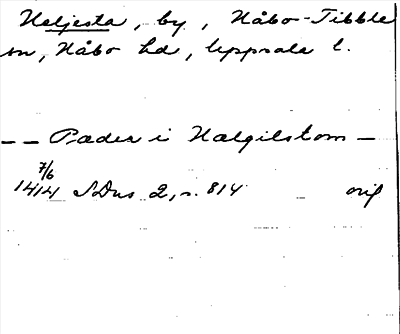 Heljesta, by, Håbo-Tibble
sn, Håbo hd, Uppsala l.
-- Pader i Halgilstom -
7/6
1414 SDns 2, s. 814 orig